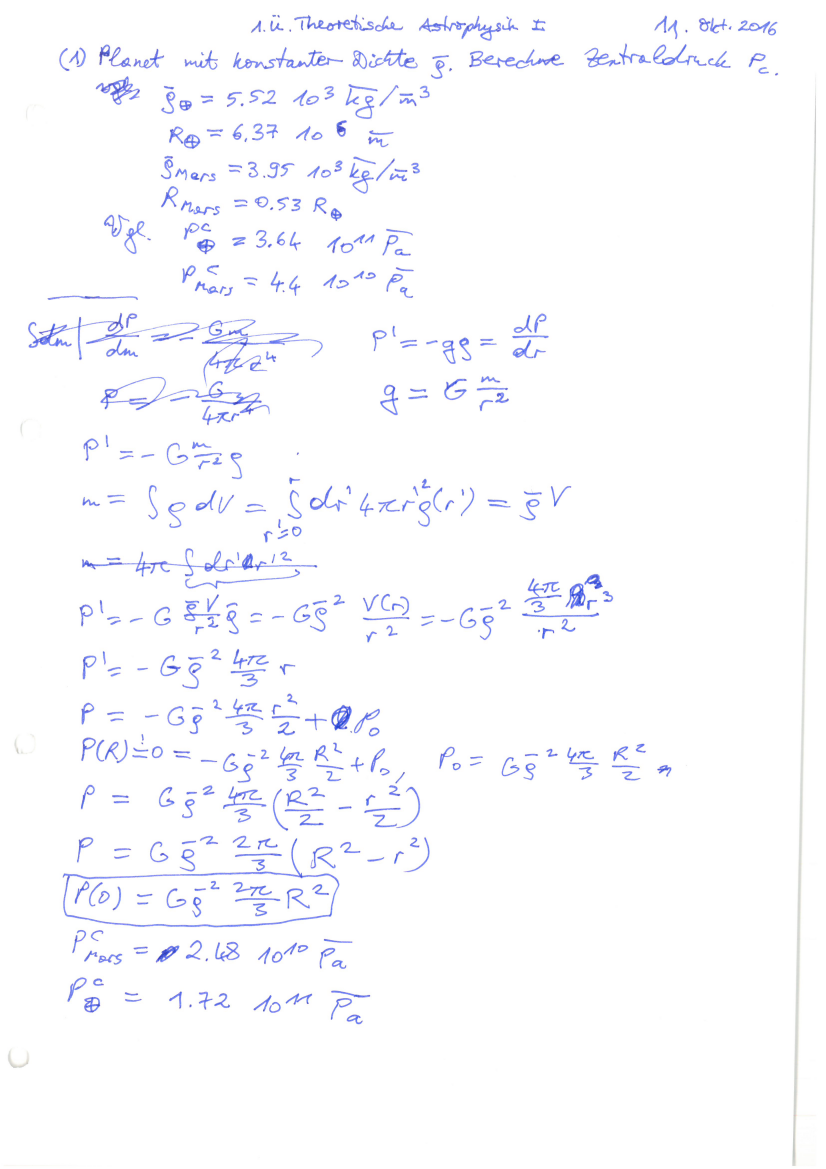 1. Ü. Theoretische Astrophysik I 11. Okt. 2016
(1) Planet mit konstanter Dichte ρ̄. Berechne Zentraldruck P_c.
ρ̄_⊕ = 5.52 10³ kg/m³
R_⊕ = 6.37 10⁶ m
ρ̄_Mars = 3.95 10³ kg/m³
R_Mars = 0.53 R_⊕
Vgl. P^c_⊕ = 3.64 10¹¹ Pa
P^c_Mars = 4.4 10¹⁰ Pa
∫dm | dP/dm = - Gm/4πr⁴ P' = -gρ = dP/dr
P = - G/4πr⁴ g = G m/r²
P' = - G m/r² ρ
m = ∫ρ dV = ∫_{r'=0}^{r} dr' 4π r'² ρ(r') = ρ̄ V
m = 4π ∫ dr' r'²
P' = - G ρ̄V/r² ρ̄ = - G ρ̄² V(r)/r² = - G ρ̄² (4π/3 r³)/r²
P' = - G ρ̄² 4π/3 r
P = - G ρ̄² 4π/3 r²/2 + P₀
P(R) =! 0 = - G ρ̄² 4π/3 R²/2 + P₀, P₀ = G ρ̄² 4π/3 R²/2
P = G ρ̄² 4π/3 (R²/2 - r²/2)
P = G ρ̄² 2π/3 (R² - r²)
P(0) = G ρ̄² 2π/3 R²
P^c_Mars = 2.48 10¹⁰ Pa
P^c_⊕ = 1.72 10¹¹ Pa